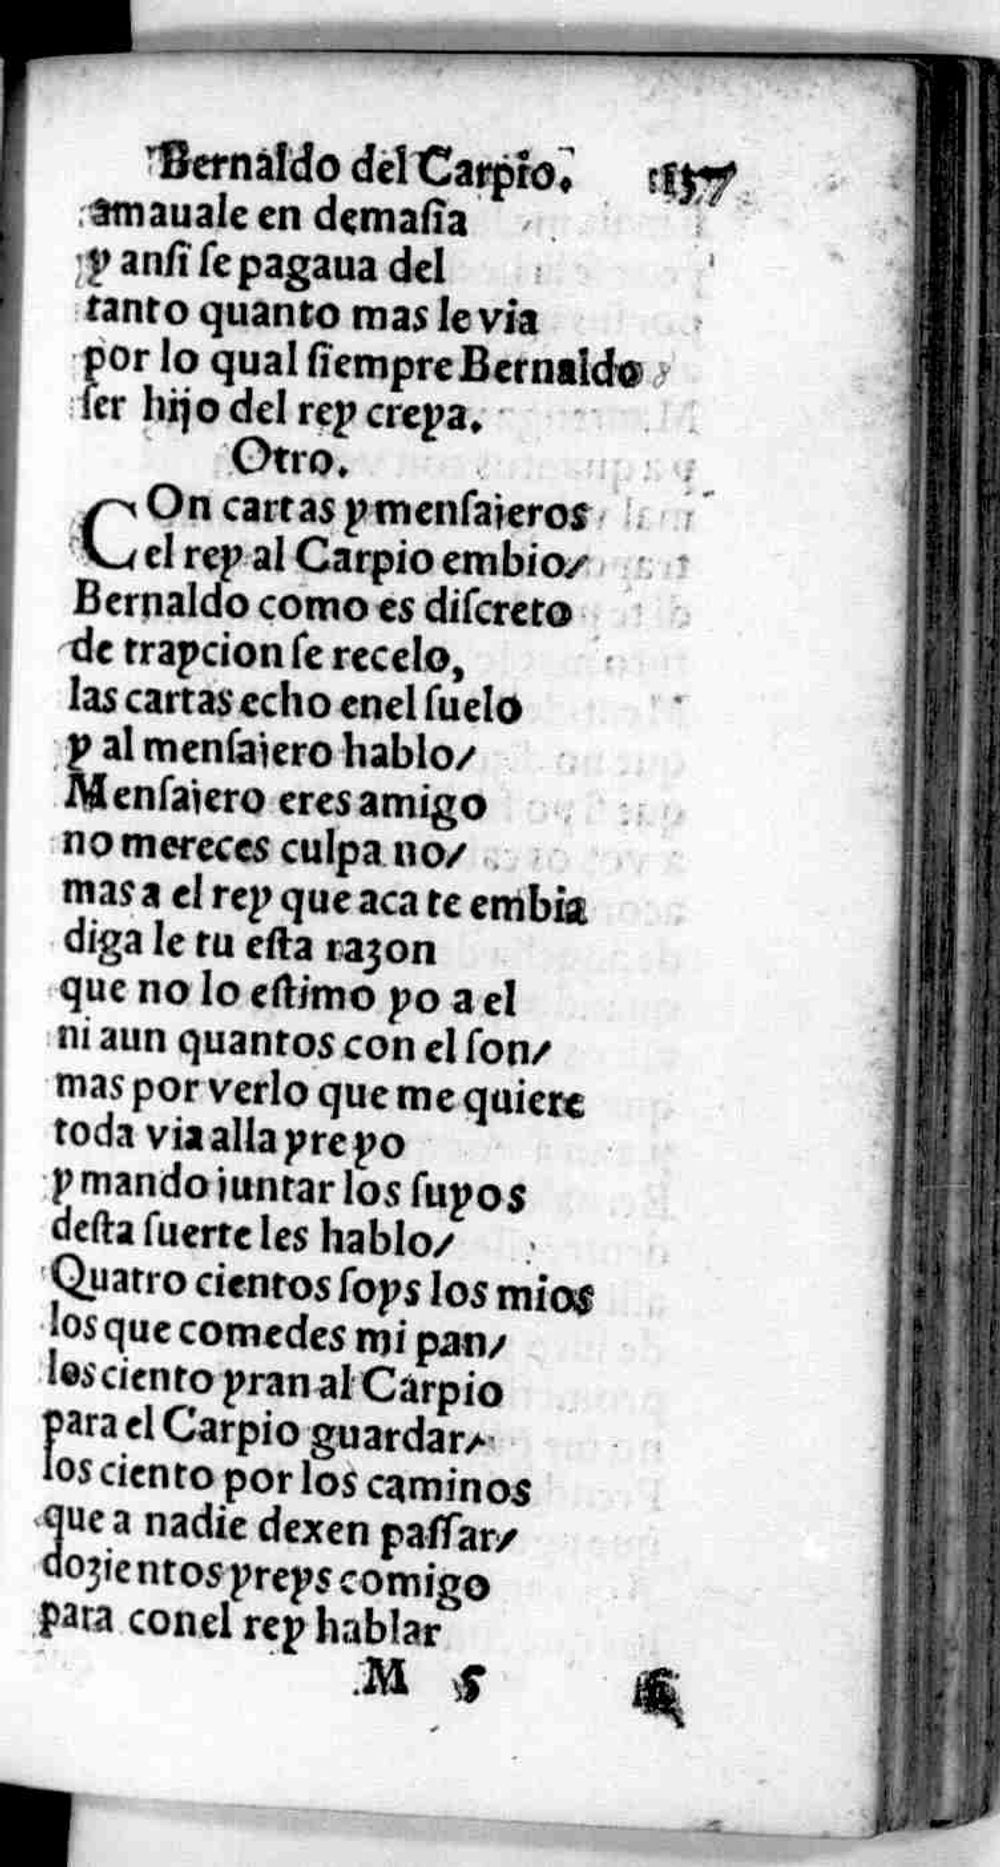 Bernaldo del Carpio. 137
amauale en demaſia
y anſi ſe pagaua del
tanto quanto mas le via
por lo qual ſiempre Bernaldo
ſer hijo del rey creya.
Otro.
COn cartas y menſaieros
el rey al Carpio embio/
Bernaldo como es diſcreto
de traycion ſe recelo,
las cartas echo enel ſuelo
y al menſaiero hablo/
Menſaiero eres amigo
no mereces culpa no/
mas a el rey que aca te embia
diga le tu eſta razon
que no lo eſtimo yo a el
ni aun quantos con el ſon/
mas por verlo que me quiere
toda via alla yre yo
y mando iuntar los ſuyos
deſta ſuerte les hablo/
Quatro cientos ſoys los mios
los que comedes mi pan/
los ciento yran al Carpio
para el Carpio guardar/
los ciento por los caminos
que a nadie dexen paſſar/
dozientos yreys comigo
para conel rey hablar
M 5